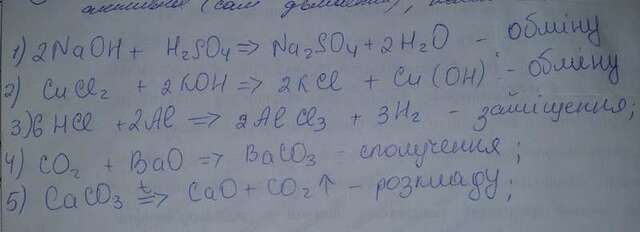 активніє (сам
1) 2NaOH + H₂SO₄ ⇒ Na₂SO₄ + 2H₂O - обміну
2) CuCl₂ + 2KOH ⇒ 2KCl + Cu(OH) - обміну
3) 6HCl + 2Al ⇒ 2AlCl₃ + 3H₂ - заміщення;
4) CO₂ + BaO ⇒ BaCO₃ - сполучення;
5) CaCO₃ t⇒ CaO + CO₂↑ - розкладу;